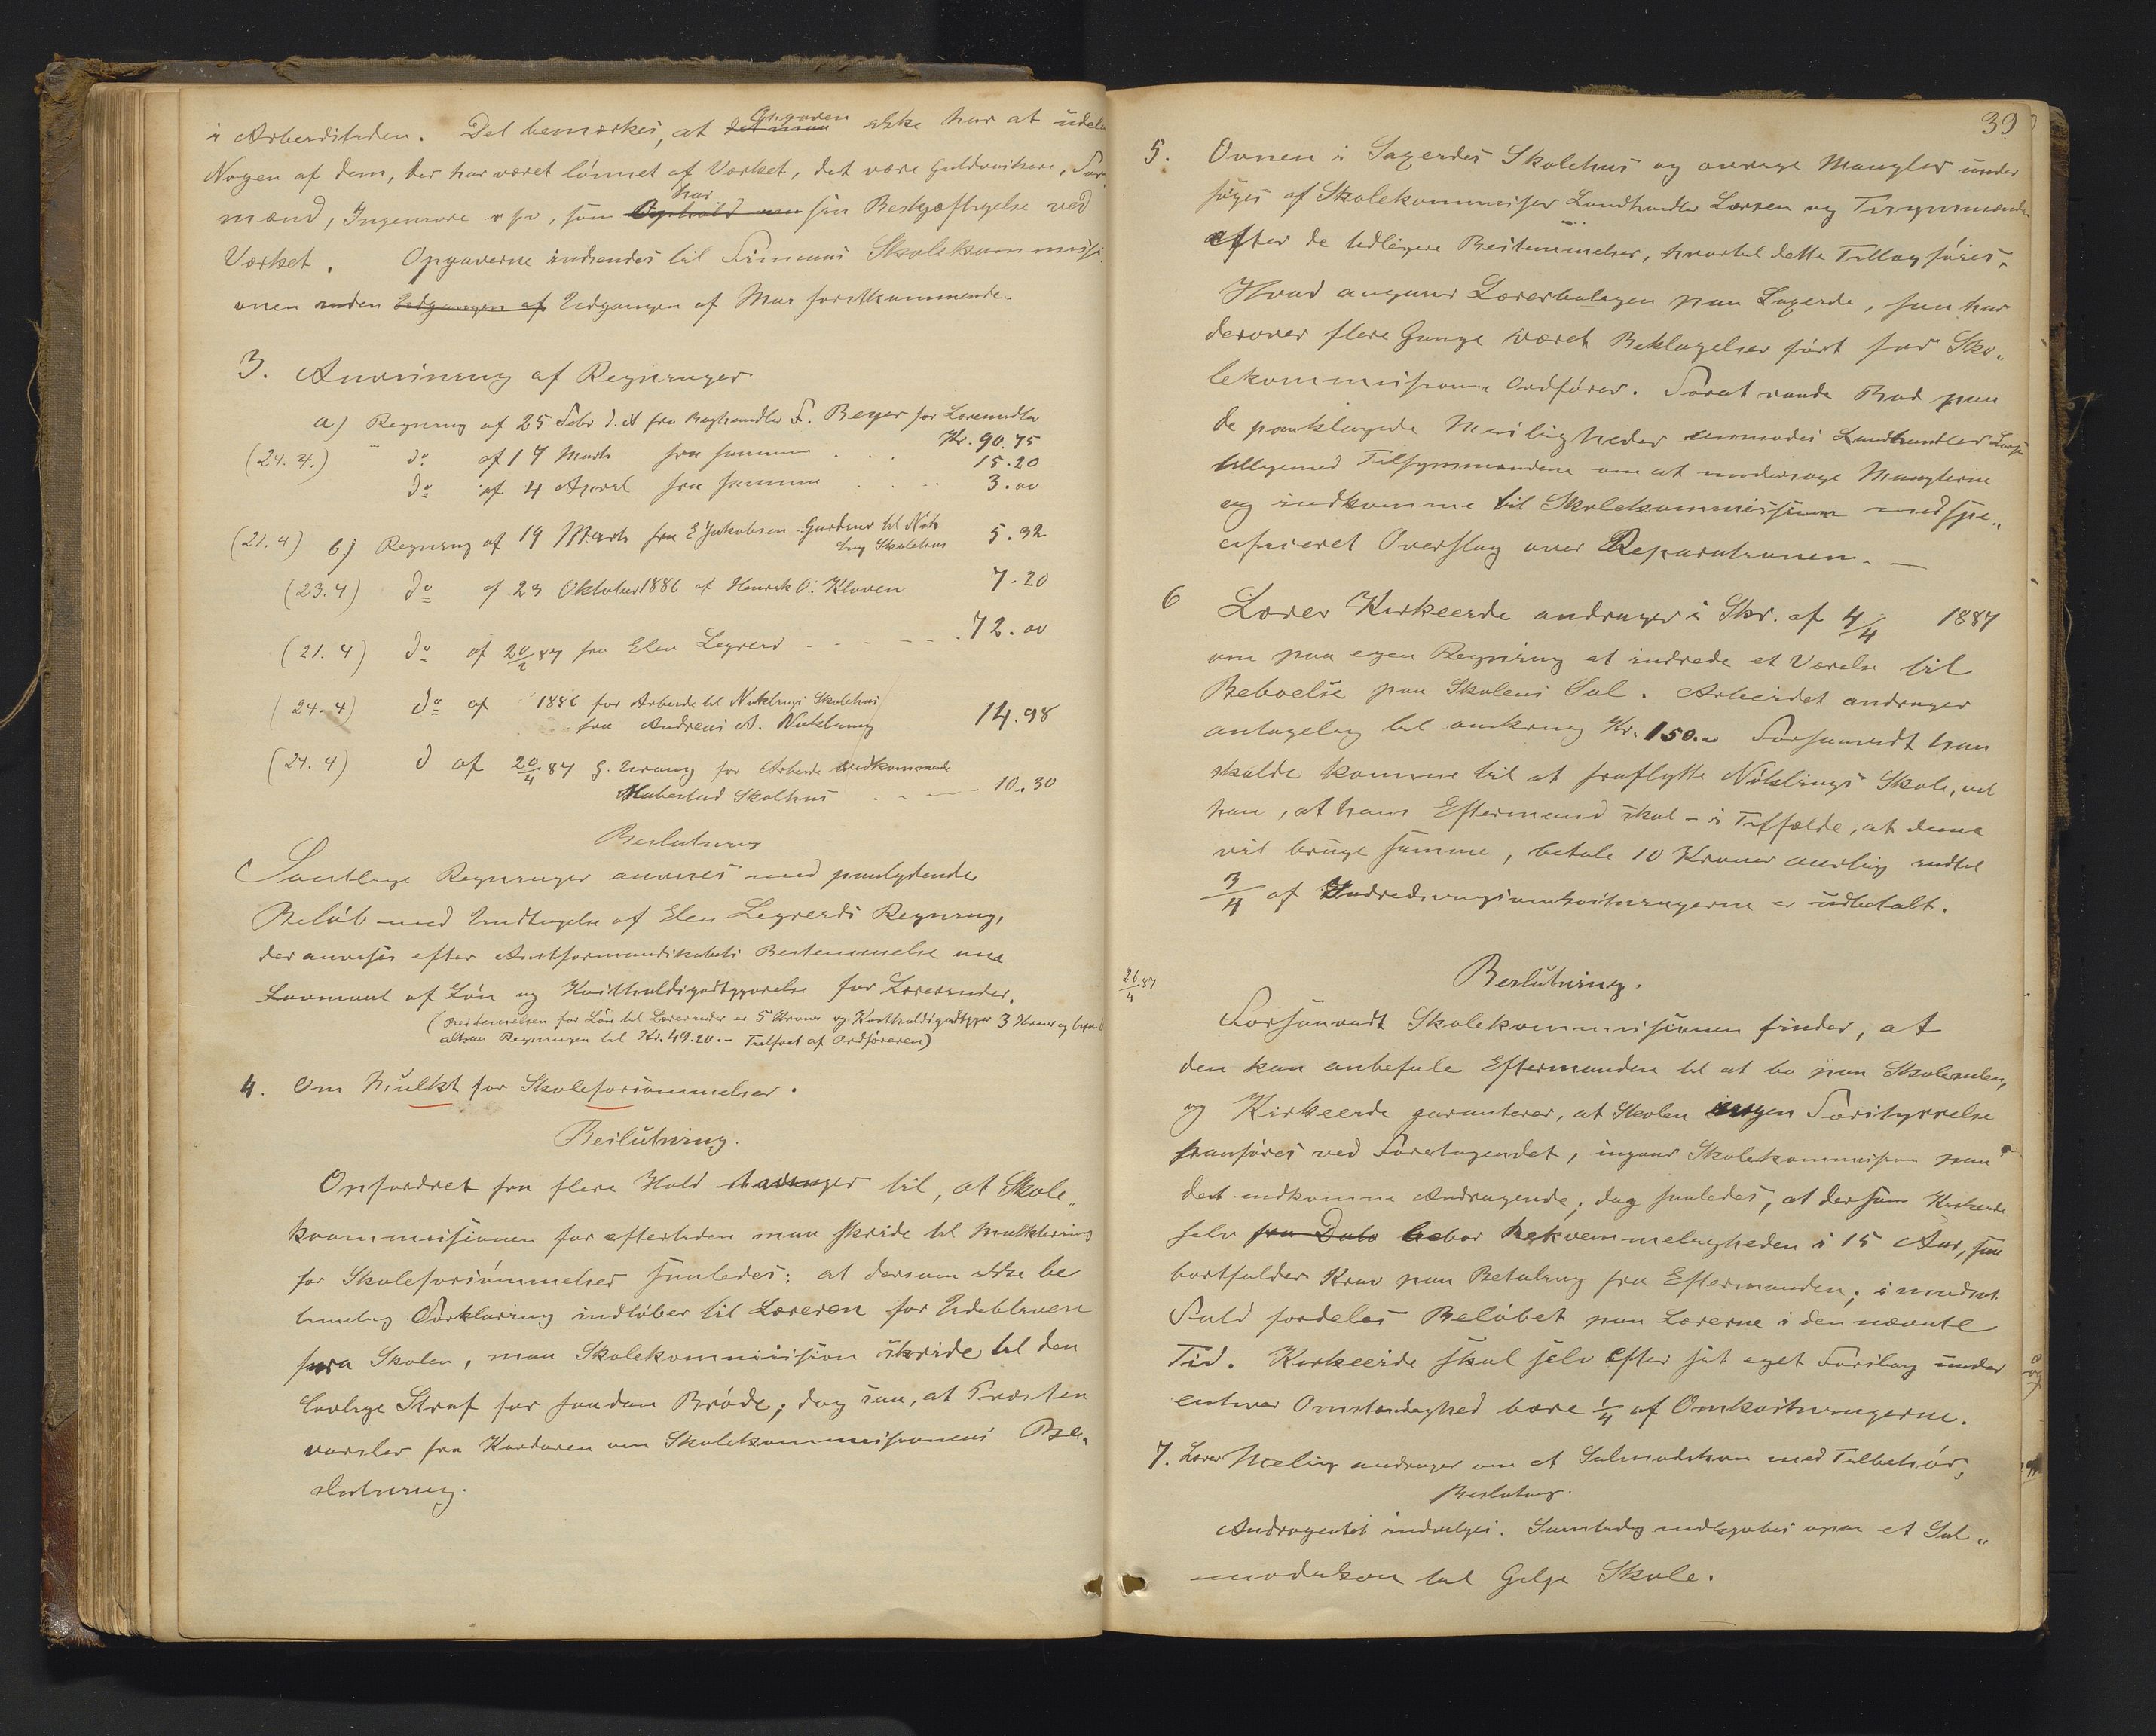 i Arbeidstiden. Det bemærkes, at det maa Opgaven ikke har at udela
Nogen af dem, der har været lønnet af Værket, det være Guldvaskere, For
mænd, Ingeniøre o s v, som har sin Beskjæftigelse ved
Værket. Opgaverne indsendes til Finnaas Skolekommissi
onen inden Udgangen af Udgangen af Mai førstkommende.
3. Anvisning af Regninger
a) Regning af 25 Febr d. A fra Boghandler F. Beyer for Læremidler
Kr. 90.75
(24.4.) do af 17 Marts fra samme . . . 15.20
do af 4 April fra samme . . . 3.00
(21.4) b) Regning af 19 Marts fra E Jakobsen Gardiner til Nøk
ling Skolehus 5.32
(23.4) do af 23 Oktober 1886 af Henrik O. Kloven 7.20
(21.4) do af 20/2 87 fra Elen Legreid . . . 72.00
(24.4) do af 1886 for Arbeide til Nøklings Skolehus
fra Andreas A. Nøkling 14.98
(24.4) d af 20/4 87 for Arbeide vedkommende
Skolhus . . . 10.30
Beslutning
Samtlige Regninger anvises med paalydende
Beløb med Undtagelse af Elen Legreids Regning,
der anvises efter Amtformandskabets Bestemmelse om
af Løn og Kostholdsgodtgjørelse for Lærerinder.
(Bestemmelsen for Løn til Lærerinder er 5 Kroner og Kostholdsgodtgj. 3 Kroner og
altsaa Regningen til Kr. 49.20. – Tilført af Ordføreren)
4. Om Mulkt for Skoleforsømmelser.
Beslutning.
Opfordret fra flere Hold til, at Skole„
kommissionen for eftertiden maa skride til Mulktering
for Skoleforsømmelser saaledes: at dersom ikke be
timelig Forklaring indløber til Læreren for Udebliven
fra Skolen, maa Skolekommission skride til den
lovlige Straf for saadan Brøde; dog saa, at Præsten
varsler fra Kordøren om Skolekommissionens Be„
slutning.
39
5. Ovnen i Sagerdes Skolehus og øvrige Mangler under
søges af Skolekommissær Landhandler Larsen og Tilsynsmænden
efter de tidligere Bestemmelser, hvortil dette Tillæg føies.
Hvad angaar Lærerboligen paa Lagerde, saa har
derover flere Gange været Beklagelser ført for Sko„
lekommissionens Ordfører. For at raade Bod paa
de paaklagede Misligheder anmodes Landhandler Larsen
tilligemed Tilsynsmændene om at undersøge Manglerne
og indkomme til Skolekommissionen med spe„
cificeret Overslag over Reparationen. —
6 Lærer Kirkeerde andrager i Skr. af 4/4 1887
om paa egen Regning at indrede et Værelse til
Beboelse paa Skolens Sal. Arbeidet andrager
antagelig til omkring Kr. 150.00 Forsaavidt han
skulde komme til at fraflytte Nøklings Skole, vil
han, at hans Eftermand skal – i Tilfælde, at denne
vil bruge samme, betale 10 Kroner aarlig indtil
3/4 af Indredningsomkostningerne er udbetalt.
26/4 87
Beslutning.
Forsaavidt Skolekommissionen finder, at
den kan anbefale Eftermanden til at bo paa Skolesalen,
og Kirkeerde garanterer, at Skolen ingen Forstyrrelse
paaføres ved Foretagendet, ingaar Skolekommission paa
det indkomne Andragende; dog saaledes, at dersom Kirkeerde
selv fra Dato bebor Bekvemmeligheden i 15 Aar, saa
bortfalder Krav paa Betaling fra Eftermanden; i modsat
Fald fordeles Beløbet paa Lærerne i den nævnte
Tid. Kirkeerde skal selv efter sit eget Forslag under
enhver Omstændighed bære 1/4 af Omkostningerne.
7. Lærer Meling andrager om et Salmodikon med Tilbehør,
Beslutning.
Andragendet indvilges. Samtidig indkjøbes ogsaa et Sal„
modikon til Gilje Skole.